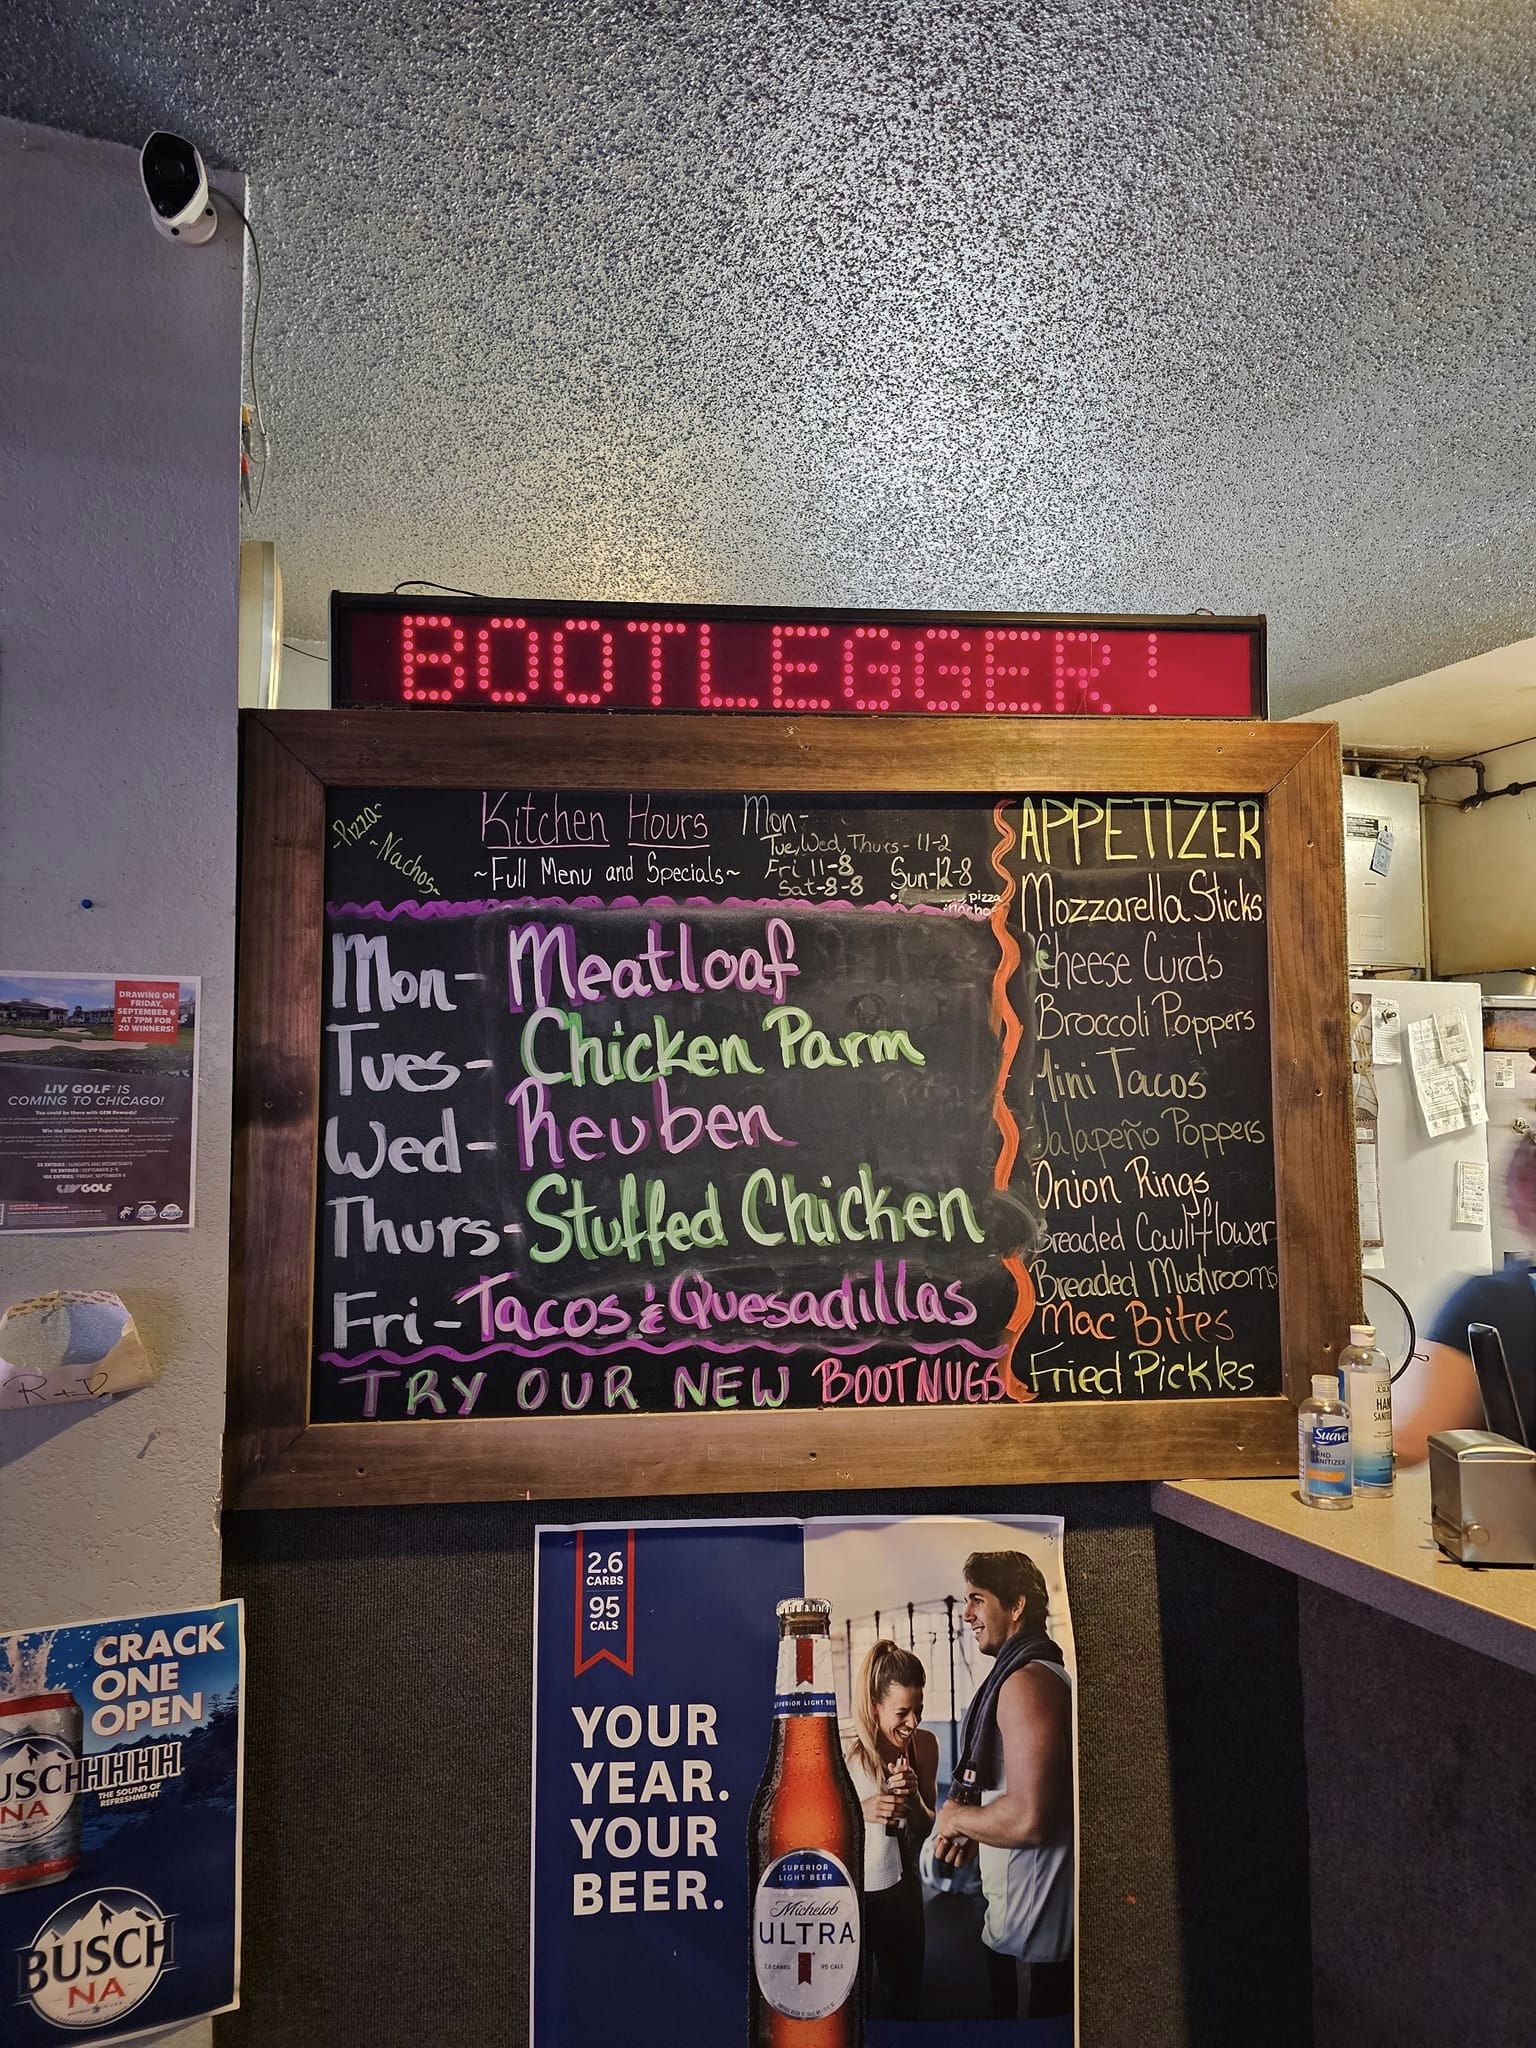 BOOTLEGGER!
~Pizza~
~Nachos~
Kitchen Hours
~Full Menu and Specials~
Mon-
Tue, Wed, Thurs - 11-2
Fri 11-8
Sat-8-8
Sun-12-8
pizza
nachos
Mon- Meatloaf
Tues- Chicken Parm
Wed- Reuben
Thurs- Stuffed Chicken
Fri- Tacos & Quesadillas
TRY OUR NEW BOOTNUGS
APPETIZER
Mozzarella Sticks
Cheese Curds
Broccoli Poppers
Mini Tacos
Jalapeño Poppers
Onion Rings
Breaded Cauliflower
Breaded Mushrooms
Mac Bites
Fried Pickles
DRAWING ON
FRIDAY,
SEPTEMBER 6
AT 7PM FOR
20 WINNERS!
LIV GOLF IS
COMING TO CHICAGO!
You could be there with GEM Rewards!
Win the Ultimate VIP Experience!
2X ENTRIES | SUNDAYS AND WEDNESDAYS
5X ENTRIES | SEPTEMBER 2-5
10X ENTRIES | FRIDAY, SEPTEMBER 6
LIV GOLF
Suave
HAND
SANITIZER
HAN
SANIT
CRACK
ONE
OPEN
USCHHHHH
THE SOUND OF
REFRESHMENT
NA
BUSCH
NA
2.6
CARBS
95
CALS
YOUR
YEAR.
YOUR
BEER.
SUPERIOR LIGHT BEER
SUPERIOR
LIGHT BEER
Michelob
ULTRA
2.6 CARBS 95 CALS